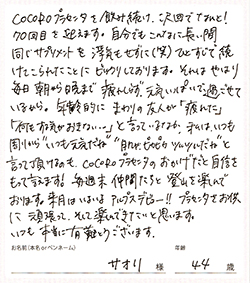 COCOROプラセンタを飲み続け、次回でなんと!
70回目を迎えます。自分でもこんなに長い間
同じサプリメントを浮気もせずに(笑)ひとすじで続
けてこられたことにビックリしております。それはやはり
毎日朝から晩まで疲れしらず、元気いっぱいで過ごせて
いるから。年齢的にまわりの友人が「疲れた」
「何もお気がおきない…」と言っているなか、私は、いつも
周りから"いつも元気だね""肌がピカピカツルツルだね"と
言って頂けるのも、COCOROプラセンタのおかげだと自信を
もって言えます!毎週末仲間たちと登山を楽しんで
おります。来月はいよいよアルプスデビュー!!プラセンタをお供
に頑張って、そして楽しんできたいと思います。
いつも本当に有難とうございます。
お名前(本名orペンネーム) 年齢
サオリ 様 44 歳